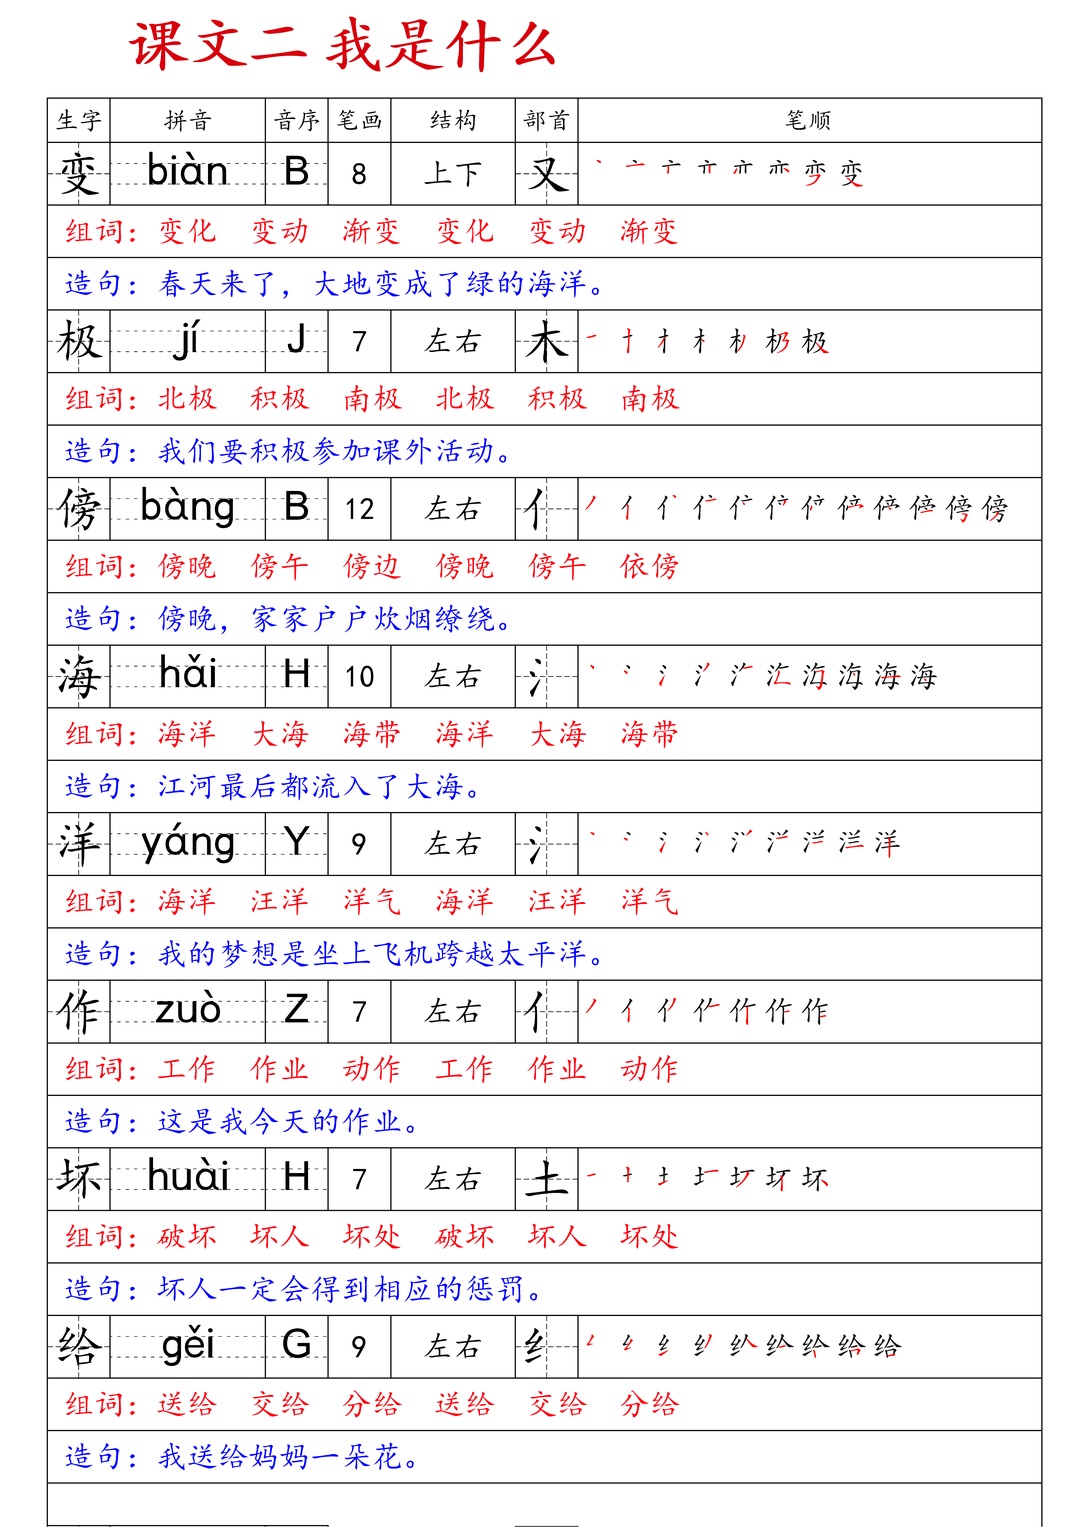 课文二 我是什么
生字 拼音 音序 笔画 结构 部首 笔顺
变 biàn B 8 上下 又
组词：变化 变动 渐变 变化 变动 渐变
造句：春天来了，大地变成了绿的海洋。
极 jí J 7 左右 木
组词：北极 积极 南极 北极 积极 南极
造句：我们要积极参加课外活动。
傍 bàng B 12 左右 亻
组词：傍晚 傍午 傍边 傍晚 傍午 依傍
造句：傍晚，家家户户炊烟缭绕。
海 hǎi H 10 左右 氵
组词：海洋 大海 海带 海洋 大海 海带
造句：江河最后都流入了大海。
洋 yáng Y 9 左右 氵
组词：海洋 汪洋 洋气 海洋 汪洋 洋气
造句：我的梦想是坐上飞机跨越太平洋。
作 zuò Z 7 左右 亻
组词：工作 作业 动作 工作 作业 动作
造句：这是我今天的作业。
坏 huài H 7 左右 土
组词：破坏 坏人 坏处 破坏 坏人 坏处
造句：坏人一定会得到相应的惩罚。
给 gěi G 9 左右 纟
组词：送给 交给 分给 送给 交给 分给
造句：我送给妈妈一朵花。